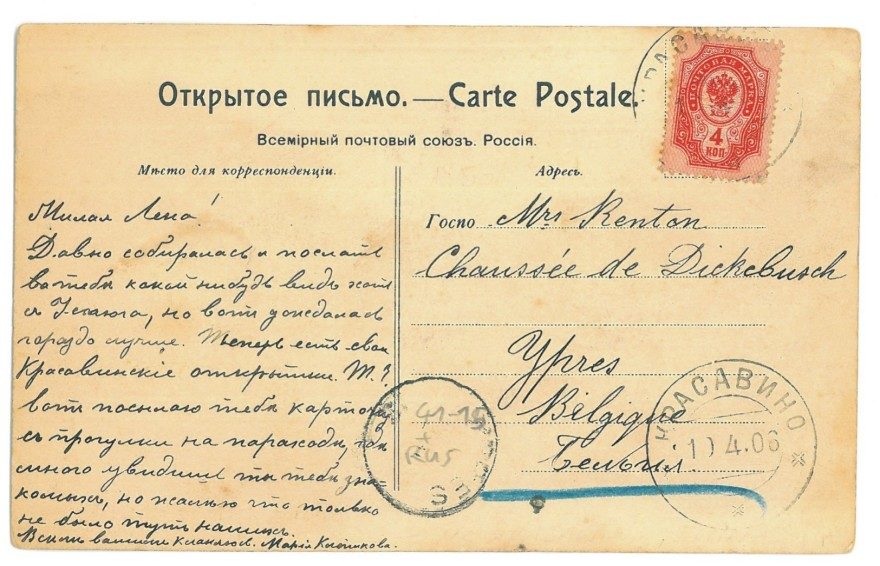 Открытое письмо. — Carte Postale.
Всемірный почтовый союзъ. Россія.
Мѣсто для корреспонденціи.
Адресъ.
КРАСАВ
ПОЧТОВАЯ МАРКА
4
КОП
Милая Лена!
Давно собиралась я послать
тебѣ какой нибудь видъ хоть
съ Устюга, но вотъ дождалась
гораздо лучше. Теперь есть свои
Красавинскіе открытки.
вотъ посылаю тебѣ карточку
съ прогулки на пароходѣ, тамъ
много увидишь ты тебѣ зна-
комыхъ, но жалко что только
не было тутъ нашихъ.
Всѣмъ вашимъ кланяюсь. Марія
Госпо Mrs Renton
Chaussée de Dickebusch
Ypres
Belgique
Бельгія.
41-15
Rus
КРАСАВИНО
4.06